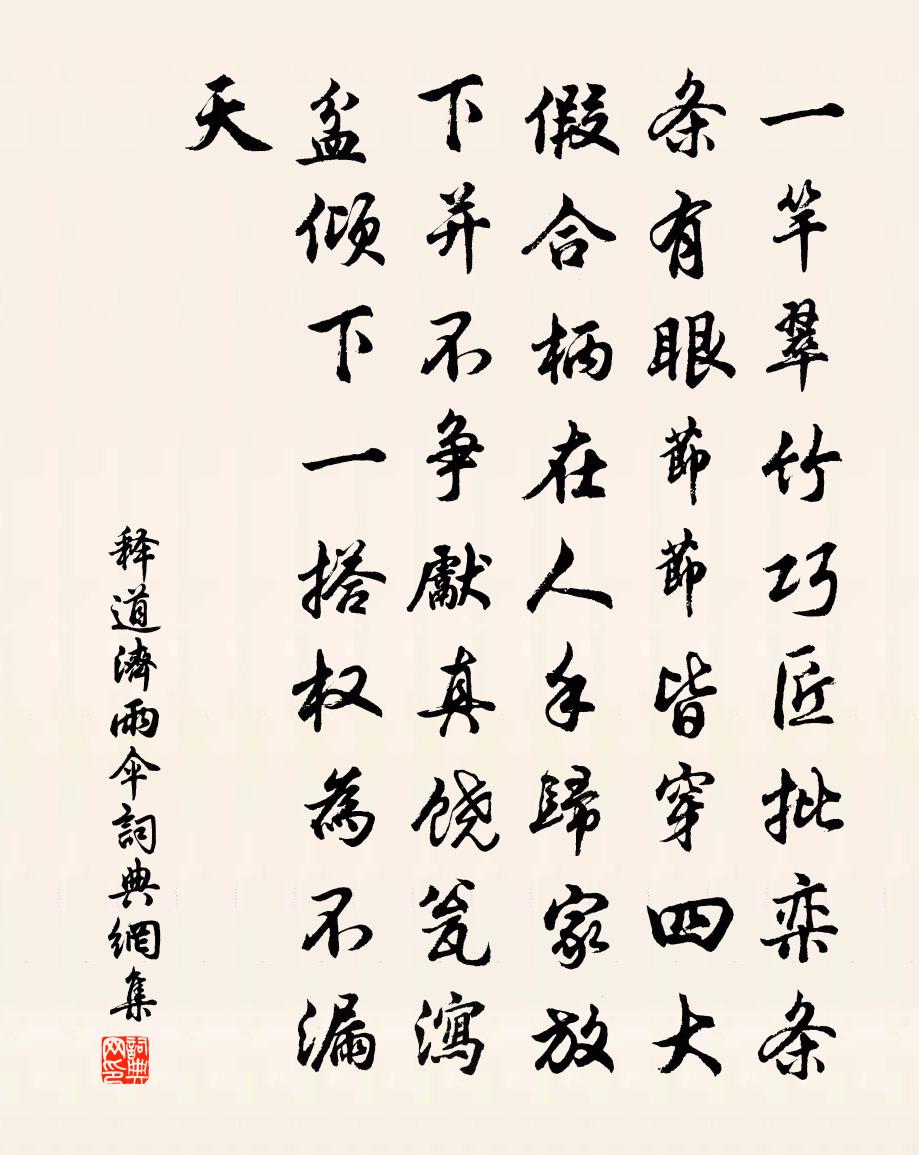 一竿翠竹巧匠批栾条
条有眼莭莭皆穿四大
假合柄在人手歸家放
下并不争獻真饶瓮瀉
盆倾下一搭权為不漏
天
释道濟雨伞詞典網集
詞典
网印